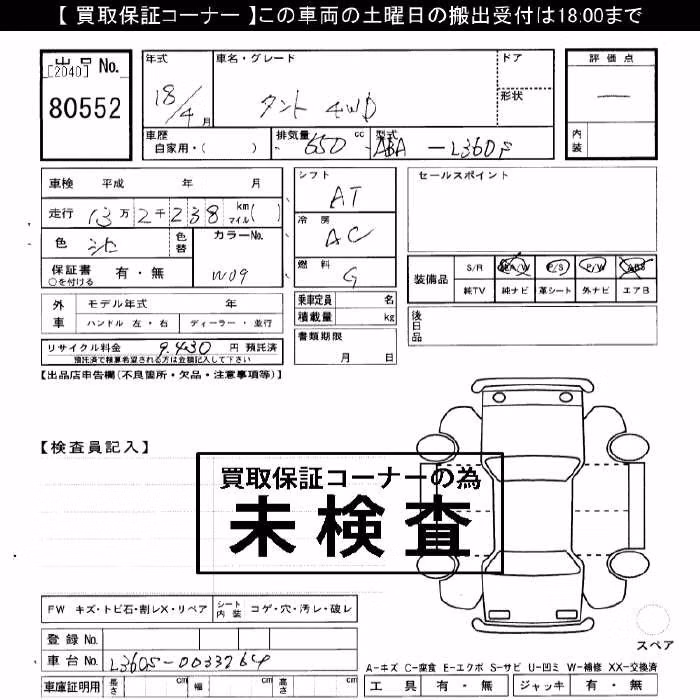 【 買取保証コーナー 】この車両の土曜日の搬出受付は18:00まで
出品 No.
[2040]
80552
年式
18/4月
車名・グレード
タント 4WD
ドア
形状
評価点
一
内装
車歴
自家用・( )
排気量
650 cc
型式
ABA -L360S
車検 平成 年 月
走行 13万2千238 km マイル( )
色 シロ
色替
カラーNo.
W09
保証書 有・無
○を付ける
シフト
AT
冷房
AC
燃料
G
セールスポイント
装備品
S/R A/W P/S P/W ABS
純TV 純ナビ 革シート 外ナビ エアB
外車
モデル年式 年
ハンドル 左・右 ディーラー・並行
乗車定員 名
積載量 kg
後日品
リサイクル料金 9,430 円 預託済
預託済で検算希望される方は金額記入して下さい
書類期限
月 日
【出品店申告欄(不良箇所・欠品・注意事項等)】
【検査員記入】
買取保証コーナーの為
未検査
FW キズ・トビ石・割レX・リペア
シート内装 コゲ・穴・汚レ・破レ
登録No.
車台No. L360S-0033264
車庫証明用 長さ cm 幅 cm 高さ cm
スペア
A-キズ C-腐食 E-エクボ S-サビ U-凹ミ W-補修 XX-交換済
工具 有・無 ジャッキ 有・無